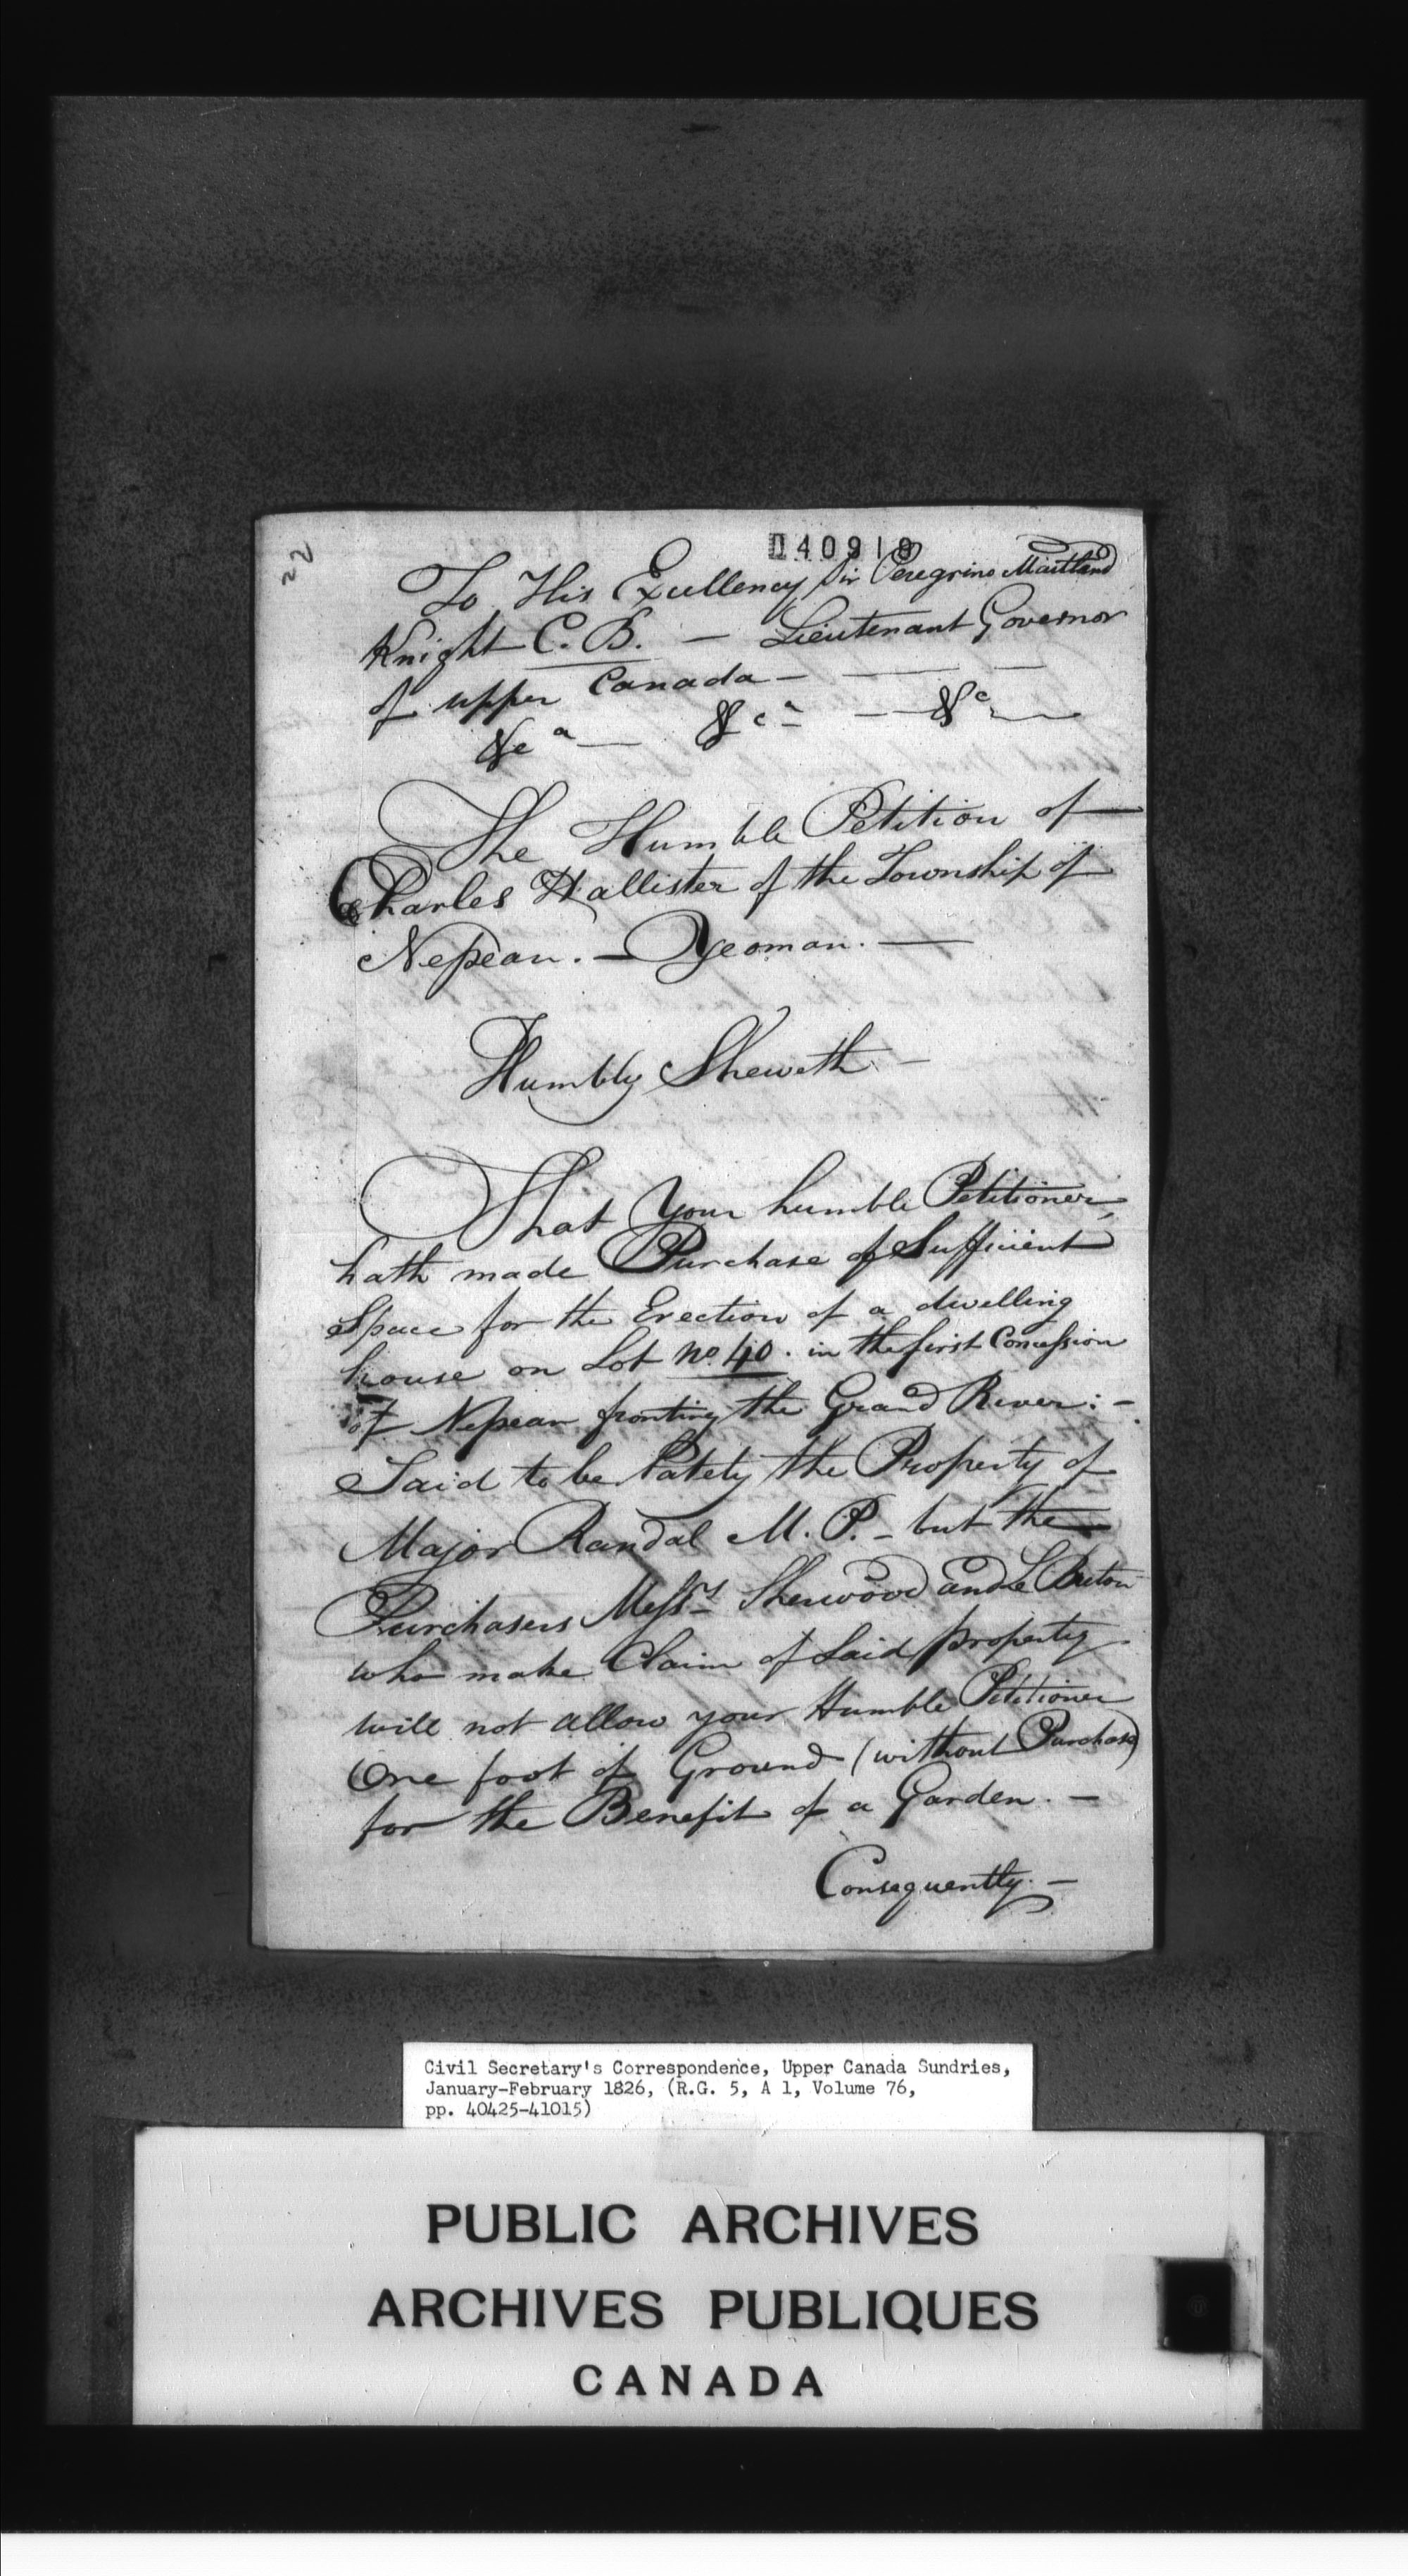 22
040919
To His Excellency Sir Peregrine Maitland
Knight C. B. — Lieutenant Governor
of upper Canada — — —
&ca — &ca — &c —
The Humble Petition of
Charles Hallister of the Township of
Nepean. — Yeoman. —
Humbly Sheweth —
That Your humble Petitioner,
hath made Purchase of Sufficient
Space for the Erection of a dwelling
house on Lot No 40. in the first Concession
of Nepean fronting the Grand River: -
Said to be lately the Property of
Major Randal M. P. - but the
Purchasers Messrs Sherwood and Le Breton
who make Claim of Said property
will not allow your Humble Petitioner
One foot of Ground (without Purchase)
for the Benefit of a Garden. —
Consequently. —
Civil Secretary's Correspondence, Upper Canada Sundries,
January-February 1826, (R.G. 5, A 1, Volume 76,
pp. 40425-41015)
PUBLIC ARCHIVES
ARCHIVES PUBLIQUES
CANADA